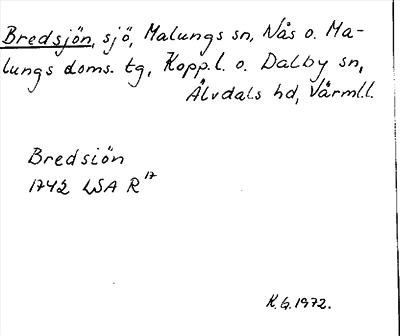 Bredsjön, sjö, Malungs sn, Nås o. Ma-
lungs doms. tg, Kopp.l. o. Dalby sn,
Älvdals hd, Värml.l.
Bredsiön
1742 LSA R¹⁷
K.G. 1972.